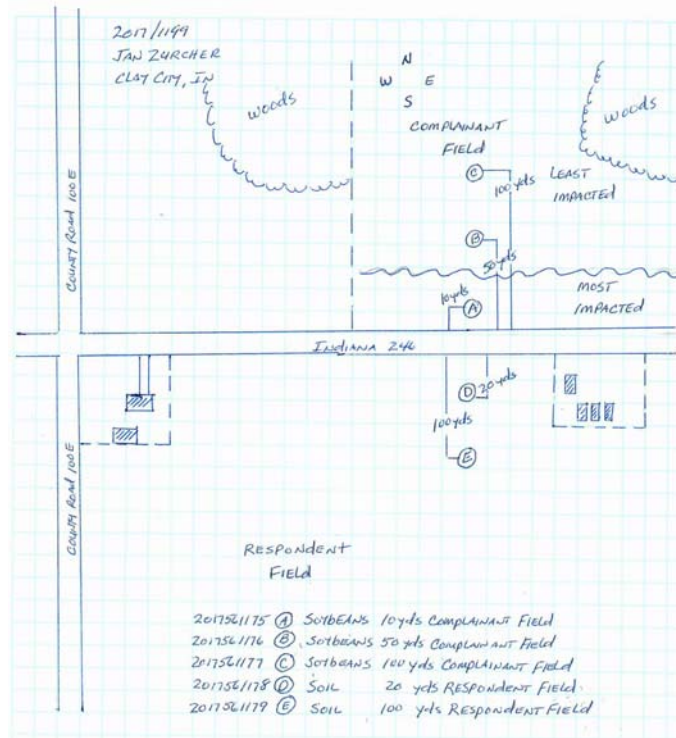 2017/1199
JAN ZURCHER
CLAY CITY, IN
WOODS
N
W E
S
COMPLAINANT
FIELD
WOODS
C
100 yds
LEAST
IMPACTED
COUNTY ROAD 100E
B
50 yds
10 yds
A
MOST
IMPACTED
INDIANA 246
D 20 yds
100 yds
E
COUNTY ROAD 100E
RESPONDENT
FIELD
2017561175 A SOYBEANS 10 yds COMPLAINANT FIELD
2017561176 B SOYBEANS 50 yds COMPLAINANT FIELD
2017561177 C SOYBEANS 100 yds COMPLAINANT FIELD
2017561178 D SOIL 20 yds RESPONDENT FIELD.
2017561179 E SOIL 100 yds RESPONDENT FIELD